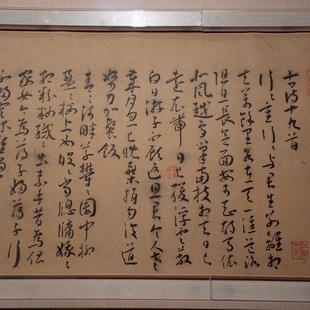 古詩十九首
行〻重行〻與君生別離相
去萬餘里各在天一涯道路
阻且長會面安可知胡馬依
北風越鳥巢南枝相去日已
遠衣帶日已緩浮雲蔽
白日遊子不顧返思君令人老
歲月忽已晚棄捐勿復道
努力加餐飯
青〻河畔草鬱〻園中柳
盈〻樓上女皎〻當窗牖娥〻
紅粉妝纖〻出素手昔為倡
家女今為蕩子婦蕩子行
不歸空床難獨